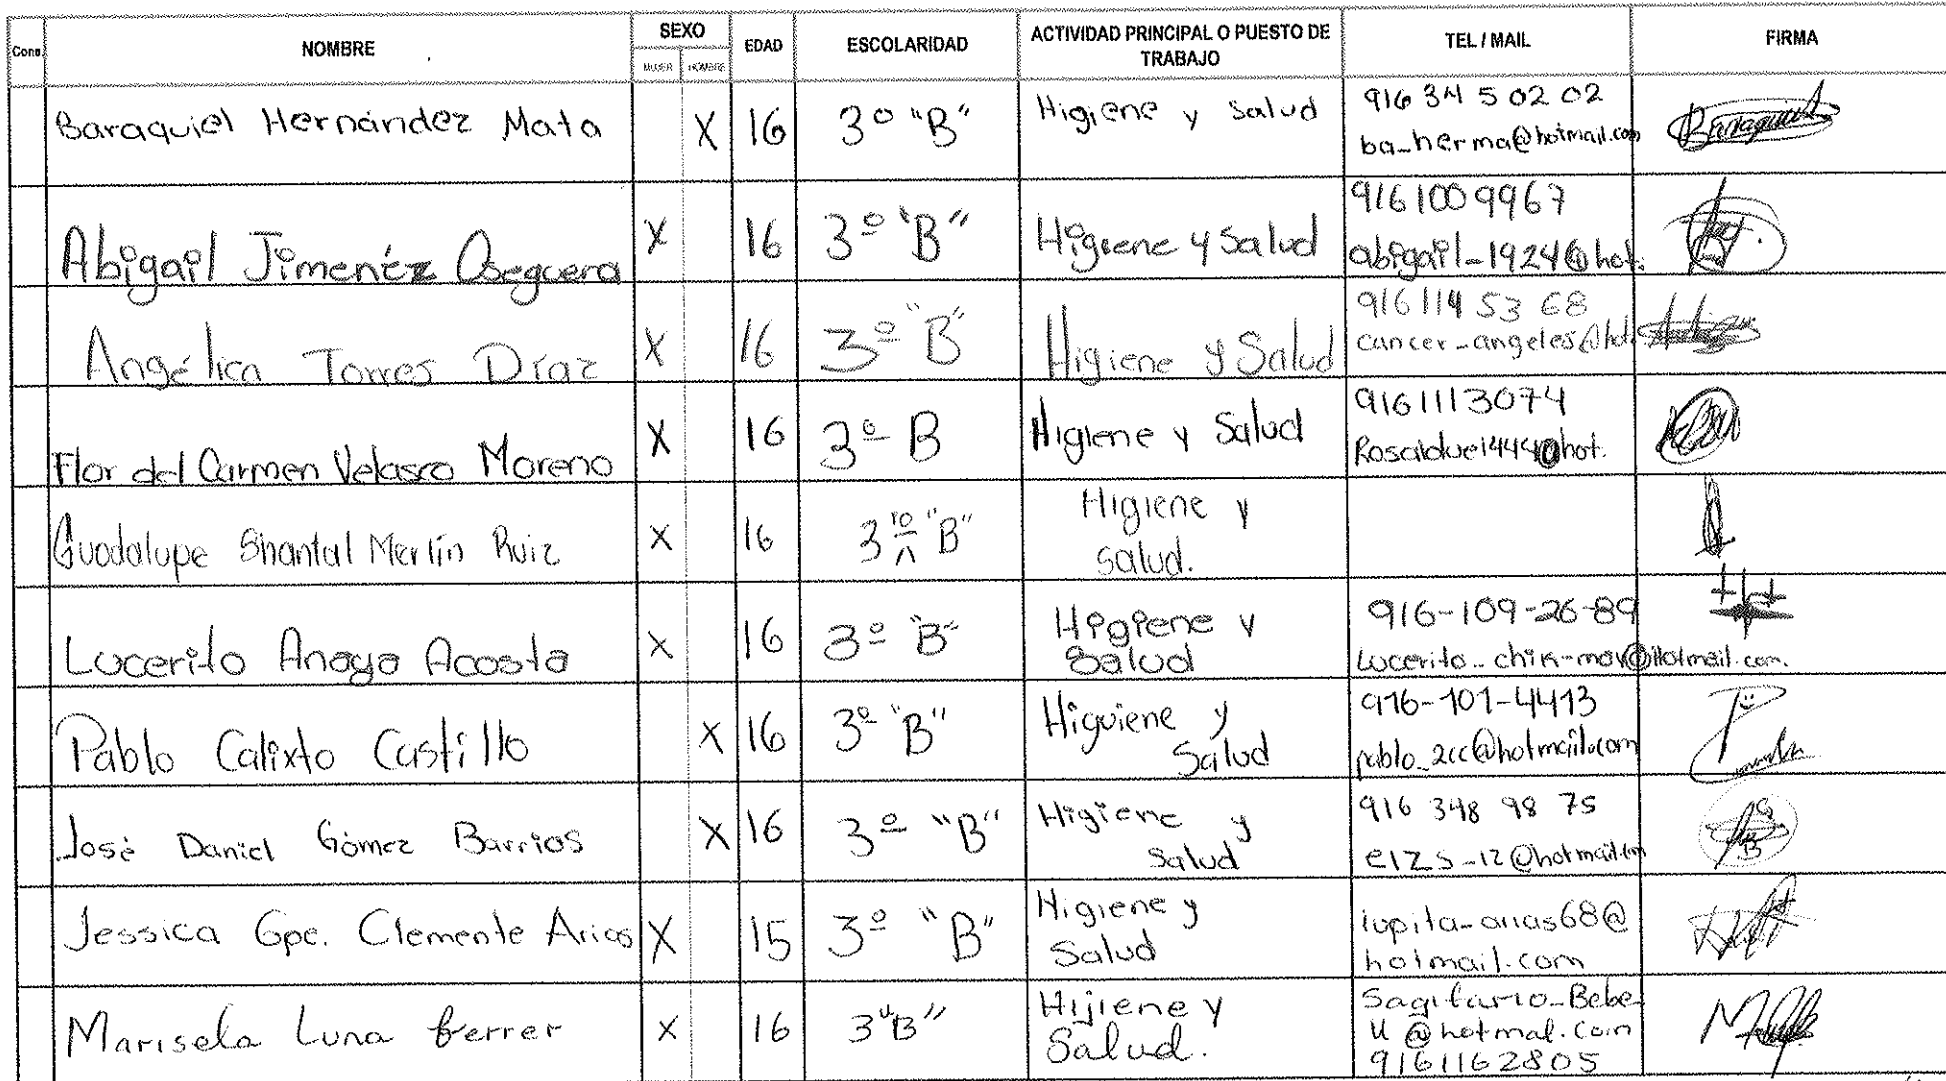 Cons. NOMBRE SEXO EDAD ESCOLARIDAD ACTIVIDAD PRINCIPAL O PUESTO DE TRABAJO TEL / MAIL FIRMA
MUJER HOMBRE
Baraquiel Hernández Mata X 16 3° "B" Higiene y Salud 916 34 5 02 02
ba_herma@hotmail.com
Abigail Jimenéz Oseguera X 16 3º "B" Higiene y Salud 9161009967
abigail_1924@hot.
Angélica Torres Díaz X 16 3º "B" Higiene y Salud 916 114 53 68
cancer_angeles@hot.
Flor del Carmen Velasco Moreno X 16 3º B Higiene y Salud 9161113074
Guadalupe Shantal Merlín Ruiz X 16 3ro "B" Higiene y
Salud.
Lucerito Anaya Acosta X 16 3º "B" Higiene y
Salud
916-109-26-89
Pablo Calixto Castillo X 16 3º "B" Higuiene y
Salud
916-101-4413
pablo_2cc@hotmail.com
José Daniel Gómez Barrios X 16 3º "B" Higiene y
Salud
916 348 98 75
Jessica Gpe. Clemente Arias X 15 3º "B" Higiene y
Salud
lupita_arias68@
hotmail.com
Marisela Luna Ferrer X 16 3"B" Hijiene y
Salud.
Sagitario_Bebe_
U @hotmal.com
9161162805